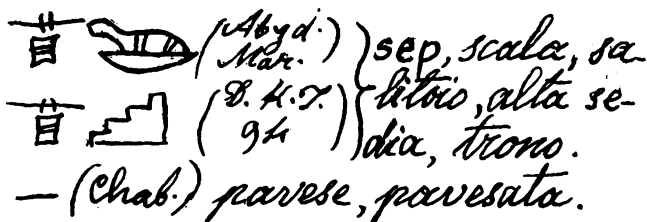 (Abyd. Mar.) } sep, scala, sa-
(D. H. T. 94) litoio, alta se-
dia, trono.
— (Chab.) pavese, pavesata.